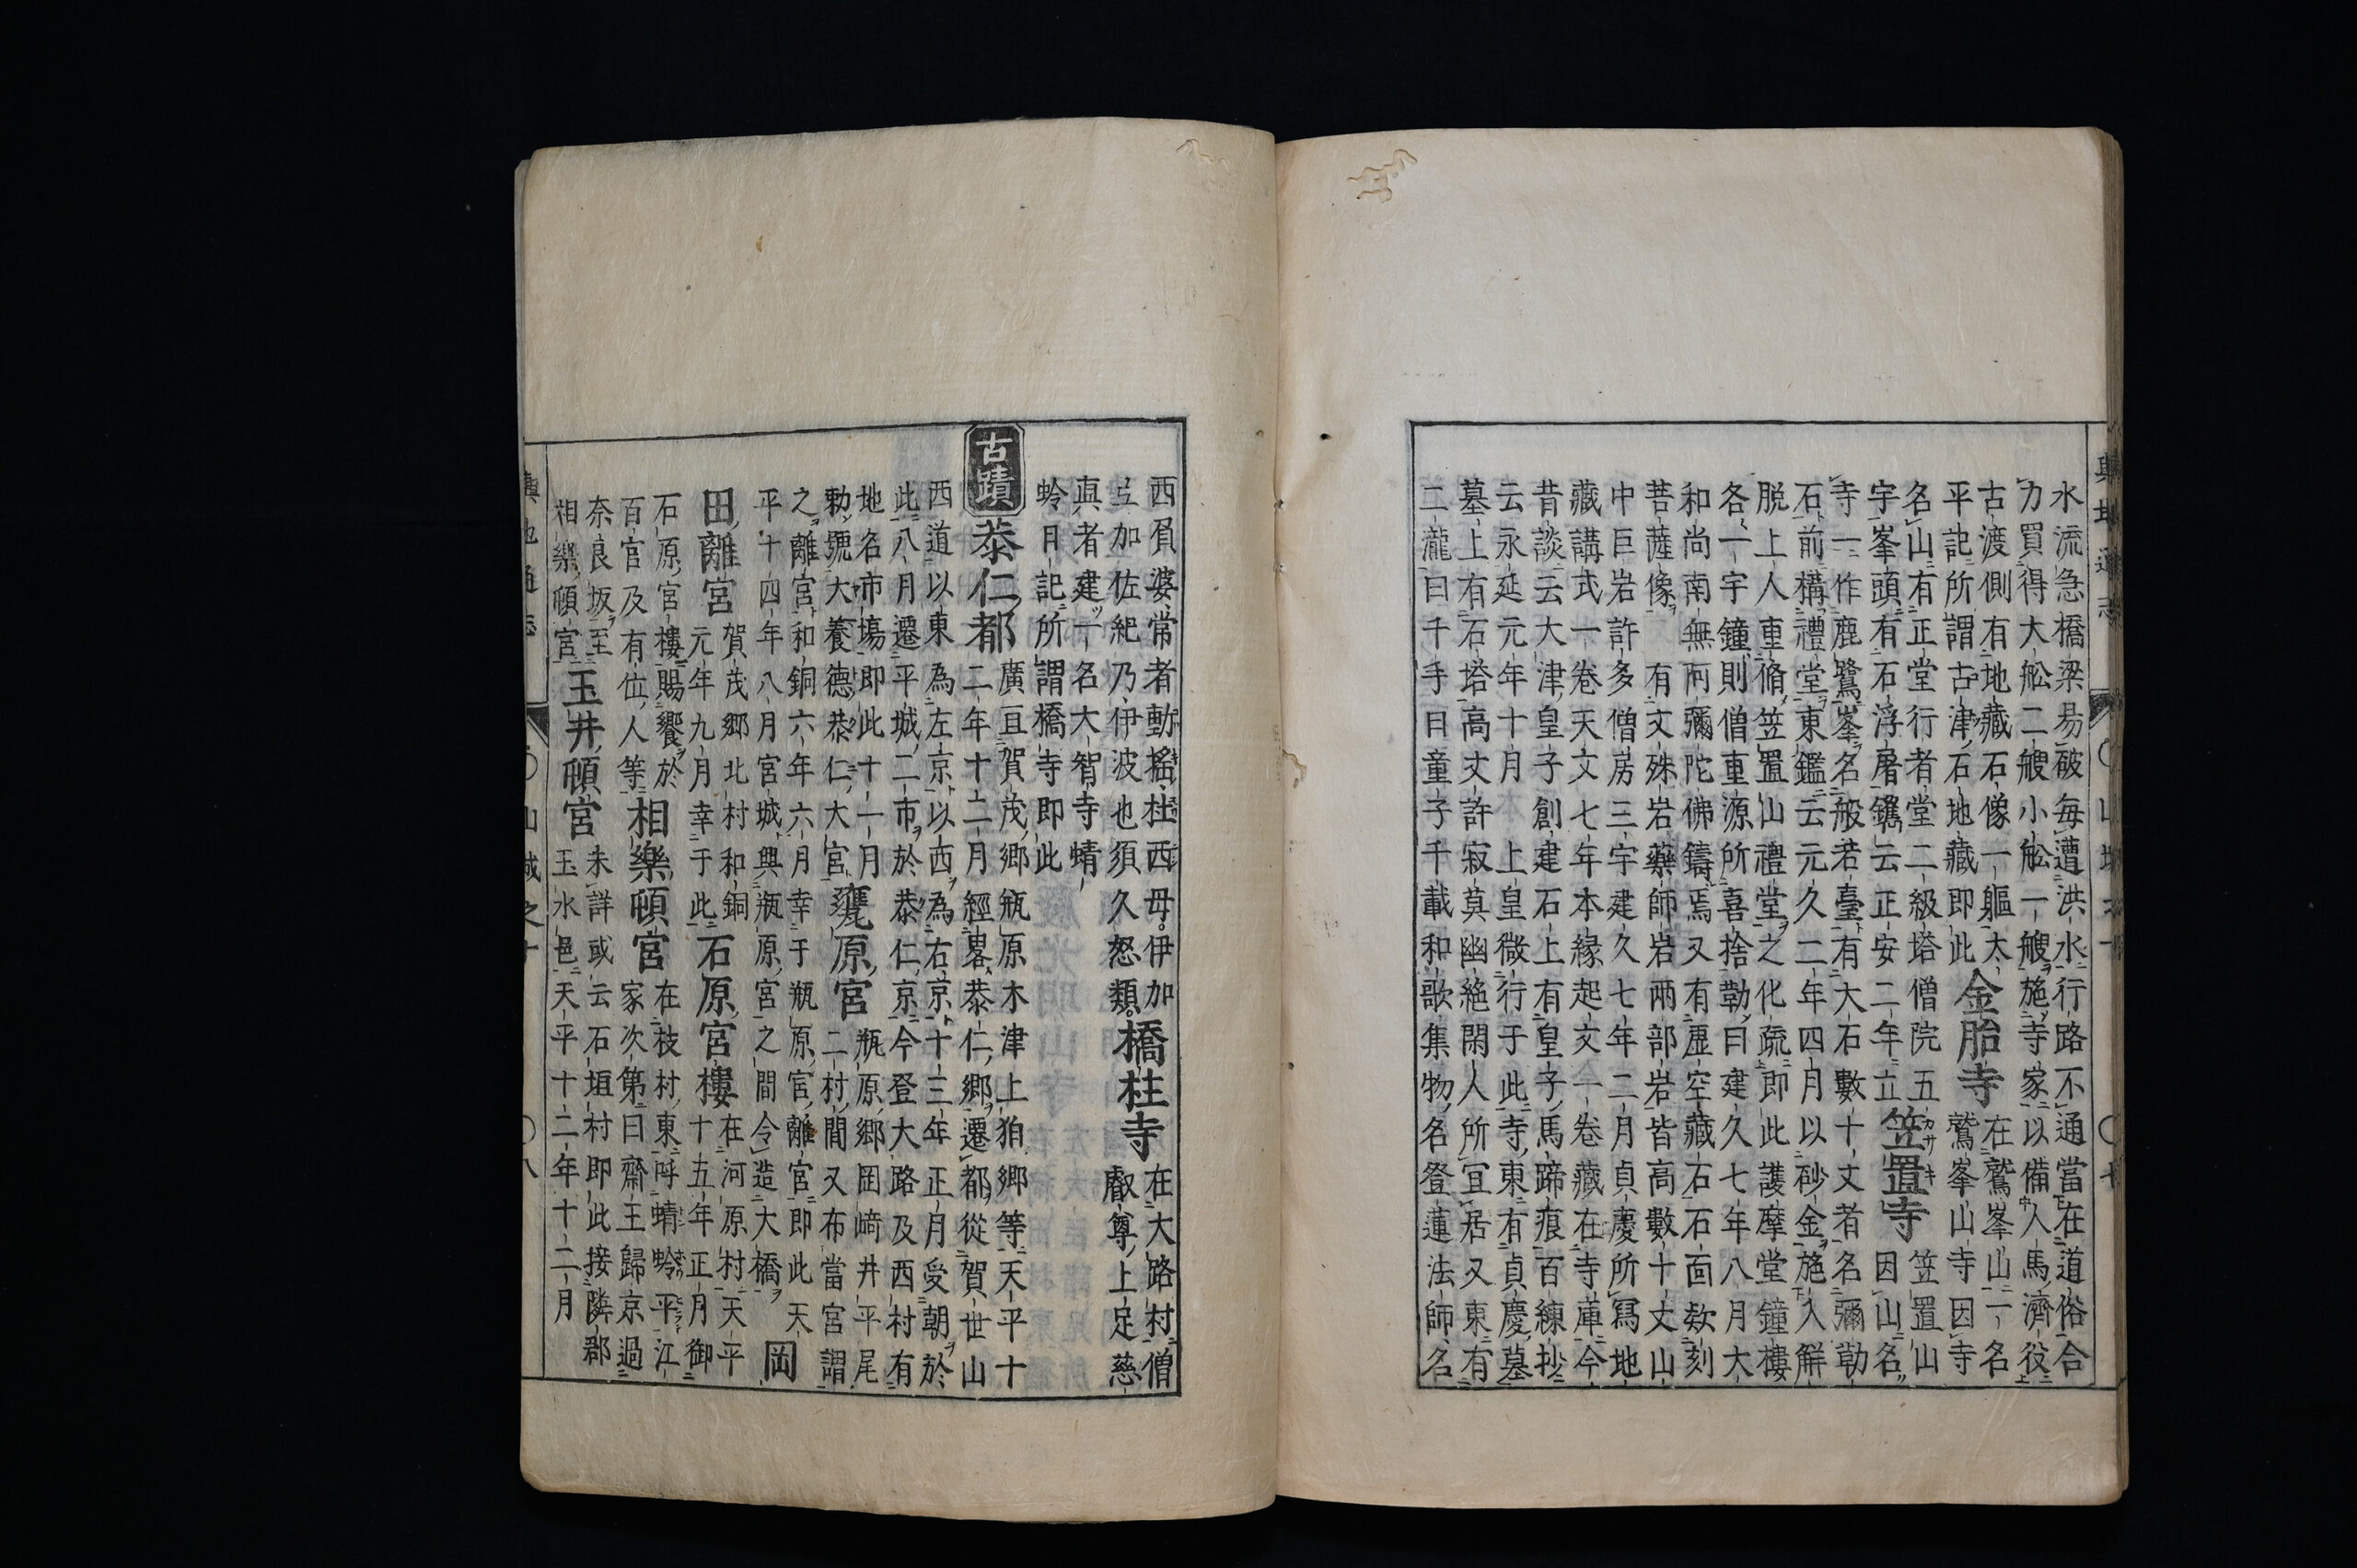 水流急橋梁易破毎遭洪水行路不通當在道俗合
力買得大舩二艘小舩一艘施寺家以備人馬濟役
古渡側有地藏石像一軀太
平記所謂古津石地藏即此
金胎寺
在鷲峯山一名
鷲峯山寺因寺
名山有正堂行者堂二級塔僧院五
宇峯頭有石浮屠鐫云正安二年立
笠置寺
カサキ
笠置山
因山名
寺一作鹿鷺峯名般若臺有大石數十丈者名彌勒
石前構禮堂東鑑云元久二年四月以砂金施入解
脱上人重脩笠置山禮堂之化疏即此護摩堂鐘樓
各一宇鐘則僧重源所喜捨勒曰建久七年八月大
和尚南無阿彌陀佛鑄焉又有虚空藏石石面欸刻
菩薩像
有文殊岩藥師岩兩部岩皆高數十丈山
中巨岩許多僧房三宇建久七年二月貞慶所冩地
藏講式一卷天文七年本縁起文一卷藏在寺庫今
昔談云大津皇子創建石上有皇子馬蹄痕百練抄
云永延元年十月
上皇微行于此寺東有貞慶墓
墓上有石塔高丈許寂莫幽絶閑人所宜居又東有
二瀧曰千手曰童子千載和歌集物名登蓮法師名
輿地通志
山城之十
七
西眉婆常者動揺杜西毋伊加
岦加佐紀乃伊波也須久怒類
橋柱寺
在大路村僧
叡尊上足慈
真者建一名大智寺蜻
蛉日記所謂橋寺即此
古蹟
恭仁都
廣亘賀茂郷瓶原木津上狛郷等天平十
二年十二月經畧恭仁郷遷都從賀世山
西道以東為左京以西為右京十三年正月受朝於
此八月遷平城二市於恭仁京今登大路及西村有
地名市塲即此十一月
勅號大養德恭仁大宮
甕原宮
瓶原郷岡﨑井平尾
二村間又布當宮謂
之離宮和銅六年六月幸于瓶原宮離宮即此天
平十四年八月宮城興瓶原宮之間令造大橋
岡
田離宮
賀茂郷北村和銅
元年九月幸于此
石原宮樓
在河原村天平
十五年正月御
石原宮樓賜饗於
百官及有位人等
相樂頓宮
在枝村東呼蜻蛉平江
家次第曰齋王歸京過
奈良坂至
相樂頓宮
玉井頓宮
未詳或云石垣村即此接隣郡
玉水邑天平十二年十二月
輿地通志
山城之十
八